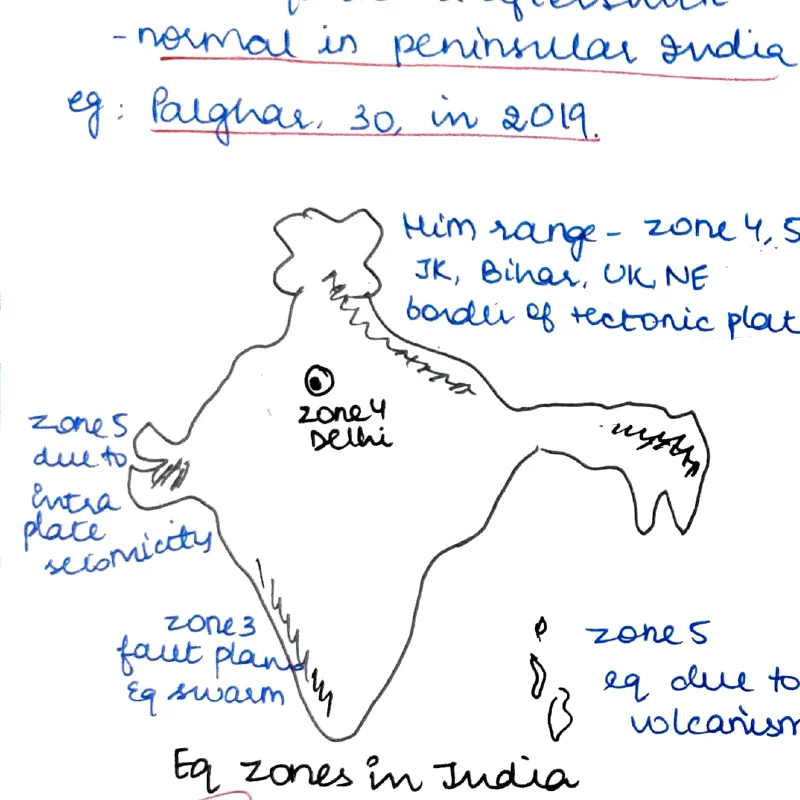 - normal in peninsular India
eg: Palghar, 30, in 2019.
Him range - zone 4, 5
JK, Bihar, UK, NE
border of tectonic plat
zone 4
Delhi
zone 5
due to
intra
plate
seismicity
zone 3
fault plan
Eq swarm
zone 5
eq due to
volcanism
Eq zones in India